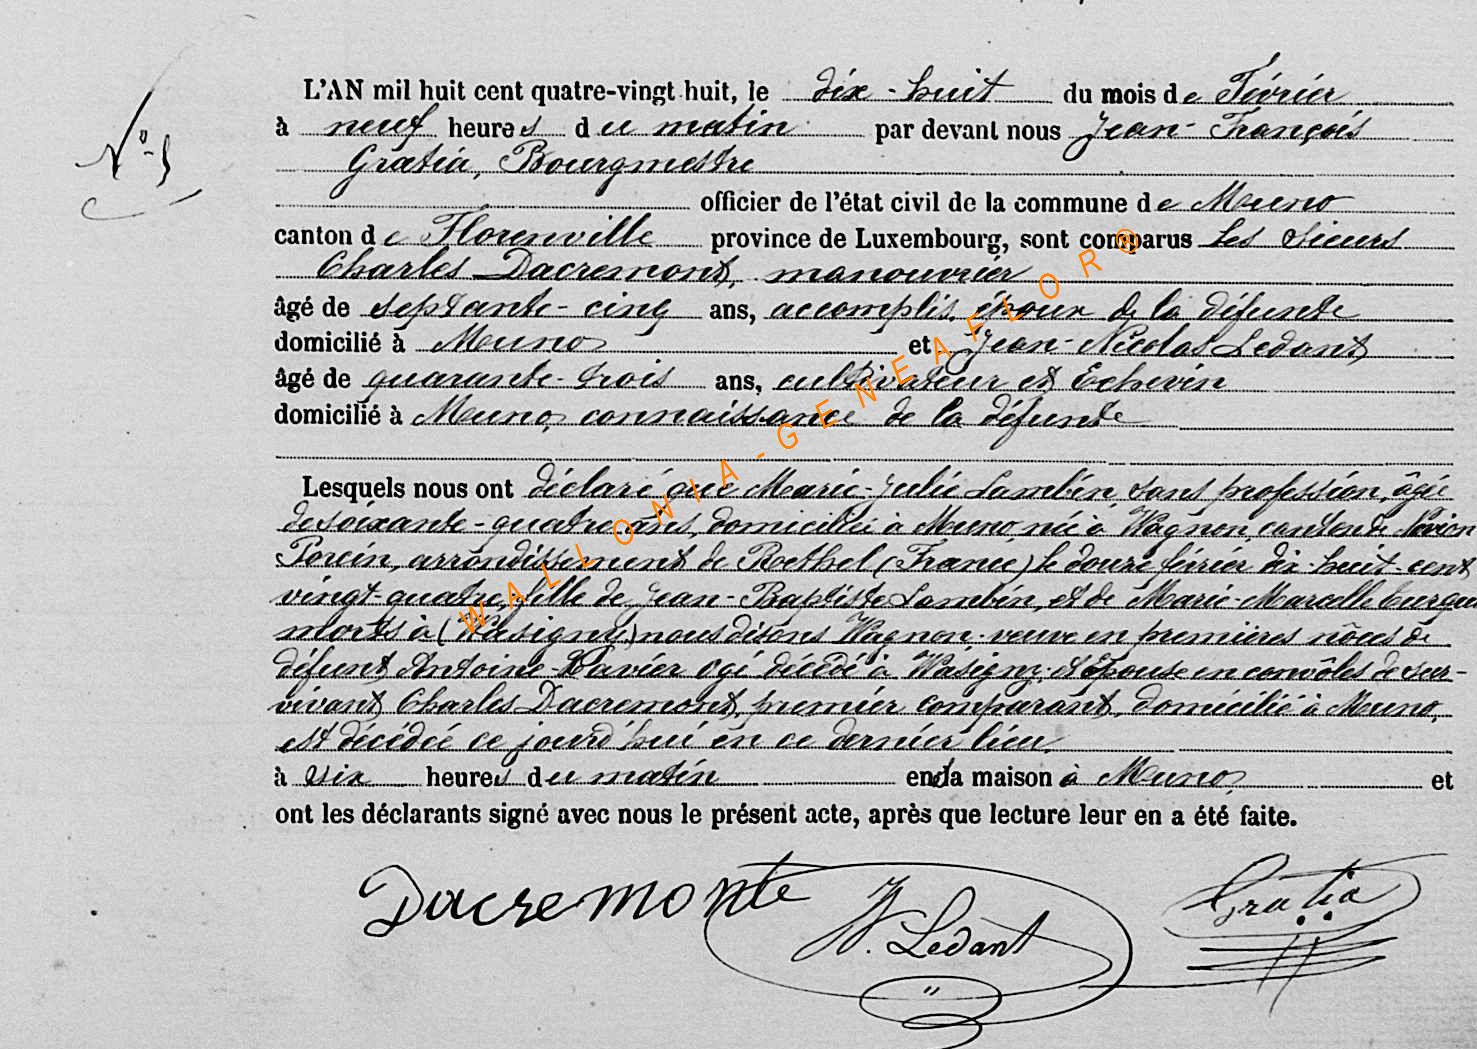 L'AN mil huit cent quatre-vingt huit, le dix-huit du mois de Février
à neuf heures du matin par devant nous Jean-François
N° 5
Gratia, Bourgmestre
officier de l'état civil de la commune de Muno
canton de Florenville province de Luxembourg, sont comparus Les sieurs
Charles Dacremont, manouvrier
âgé de septante-cinq ans, accomplis, époux de la défunte
domicilié à Muno et Jean-Nicolas Ledant
âgé de quarante-trois ans, cultivateur et Echevin
domicilié à Muno, connaissance de la défunte
Lesquels nous ont déclaré que Marie-Julie Lambin, sans profession, âgée
de soixante-quatre ans, domiciliée à Muno, née à Wagnon, canton de Novion
Porcin, arrondissement de Rethel (France) le douze février dix-huit-cent
vingt-quatre, fille de Jean-Baptiste Lambin, et de Marie-Marcelle
morts à (Wasigny) nous disons Wagnon. veuve en premières nôces de
défunt Antoine-Xavier Ogé décédé à Wasigny; et Epouse en convôles de sur-
vivant Charles Dacremont, premier comparant, domicilié à Muno,
est décédée ce jourd'hui en ce dernier lieu
à six heures du matin en la maison à Muno, et
ont les déclarants signé avec nous le présent acte, après que lecture leur en a été faite.
Dacremonte
N. Ledant
Gratia
WALLONIA-GENEAFLOR®